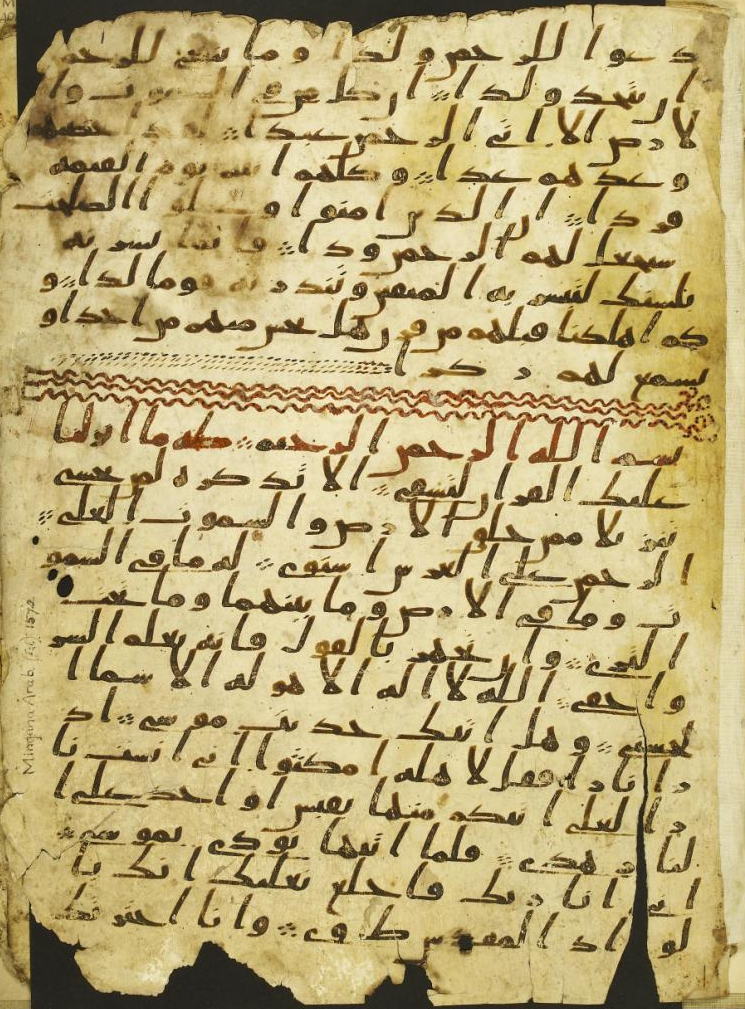 دعوا للرحمن ولدا وما ينبغي للرحمن
ان يتخذ ولدا ان كل من في السموت وا
لارض الا اتي الرحمن عبدا لقد احصيهم
وعدهم عدا وكلهم اتيه يوم القيمة
فردا ان الذين امنوا وعملوا الصلحت
سيجعل لهم الرحمن ودا فانما يسرنه
بلسنك لتبشر به المتقين وتنذر به قوما لدا و
كم اهلكنا قبلهم من قرن هل تحس منهم من احد او
تسمع لهم ركزا
بسم الله الرحمن الرحيم طه ما انزلنا
عليك القران لتشقى الا تذكرة لمن يخشى
تنزيلا ممن خلق الارض والسموت العلى
الرحمن على العرش استوى له ما في السمو
ت وما في الارض وما بينهما وما تحت
الثرى وان تجهر بالقول فانه يعلم السر
واخفى الله لا اله الا هو له الاسما ا
لحسنى وهل اتيك حديث موسى اذ
را نارا فقل لاهله امكثوا اني انست نا
را لعلي اتيكم منها بقبس او اجد على ا
لنار هدى فلما اتيها نودي يموسى
اني انا ربك فاخلع نعليك انك با
لواد المقدس طوى وانا اخترتك
Mingana Arab. (Isl.) 1572